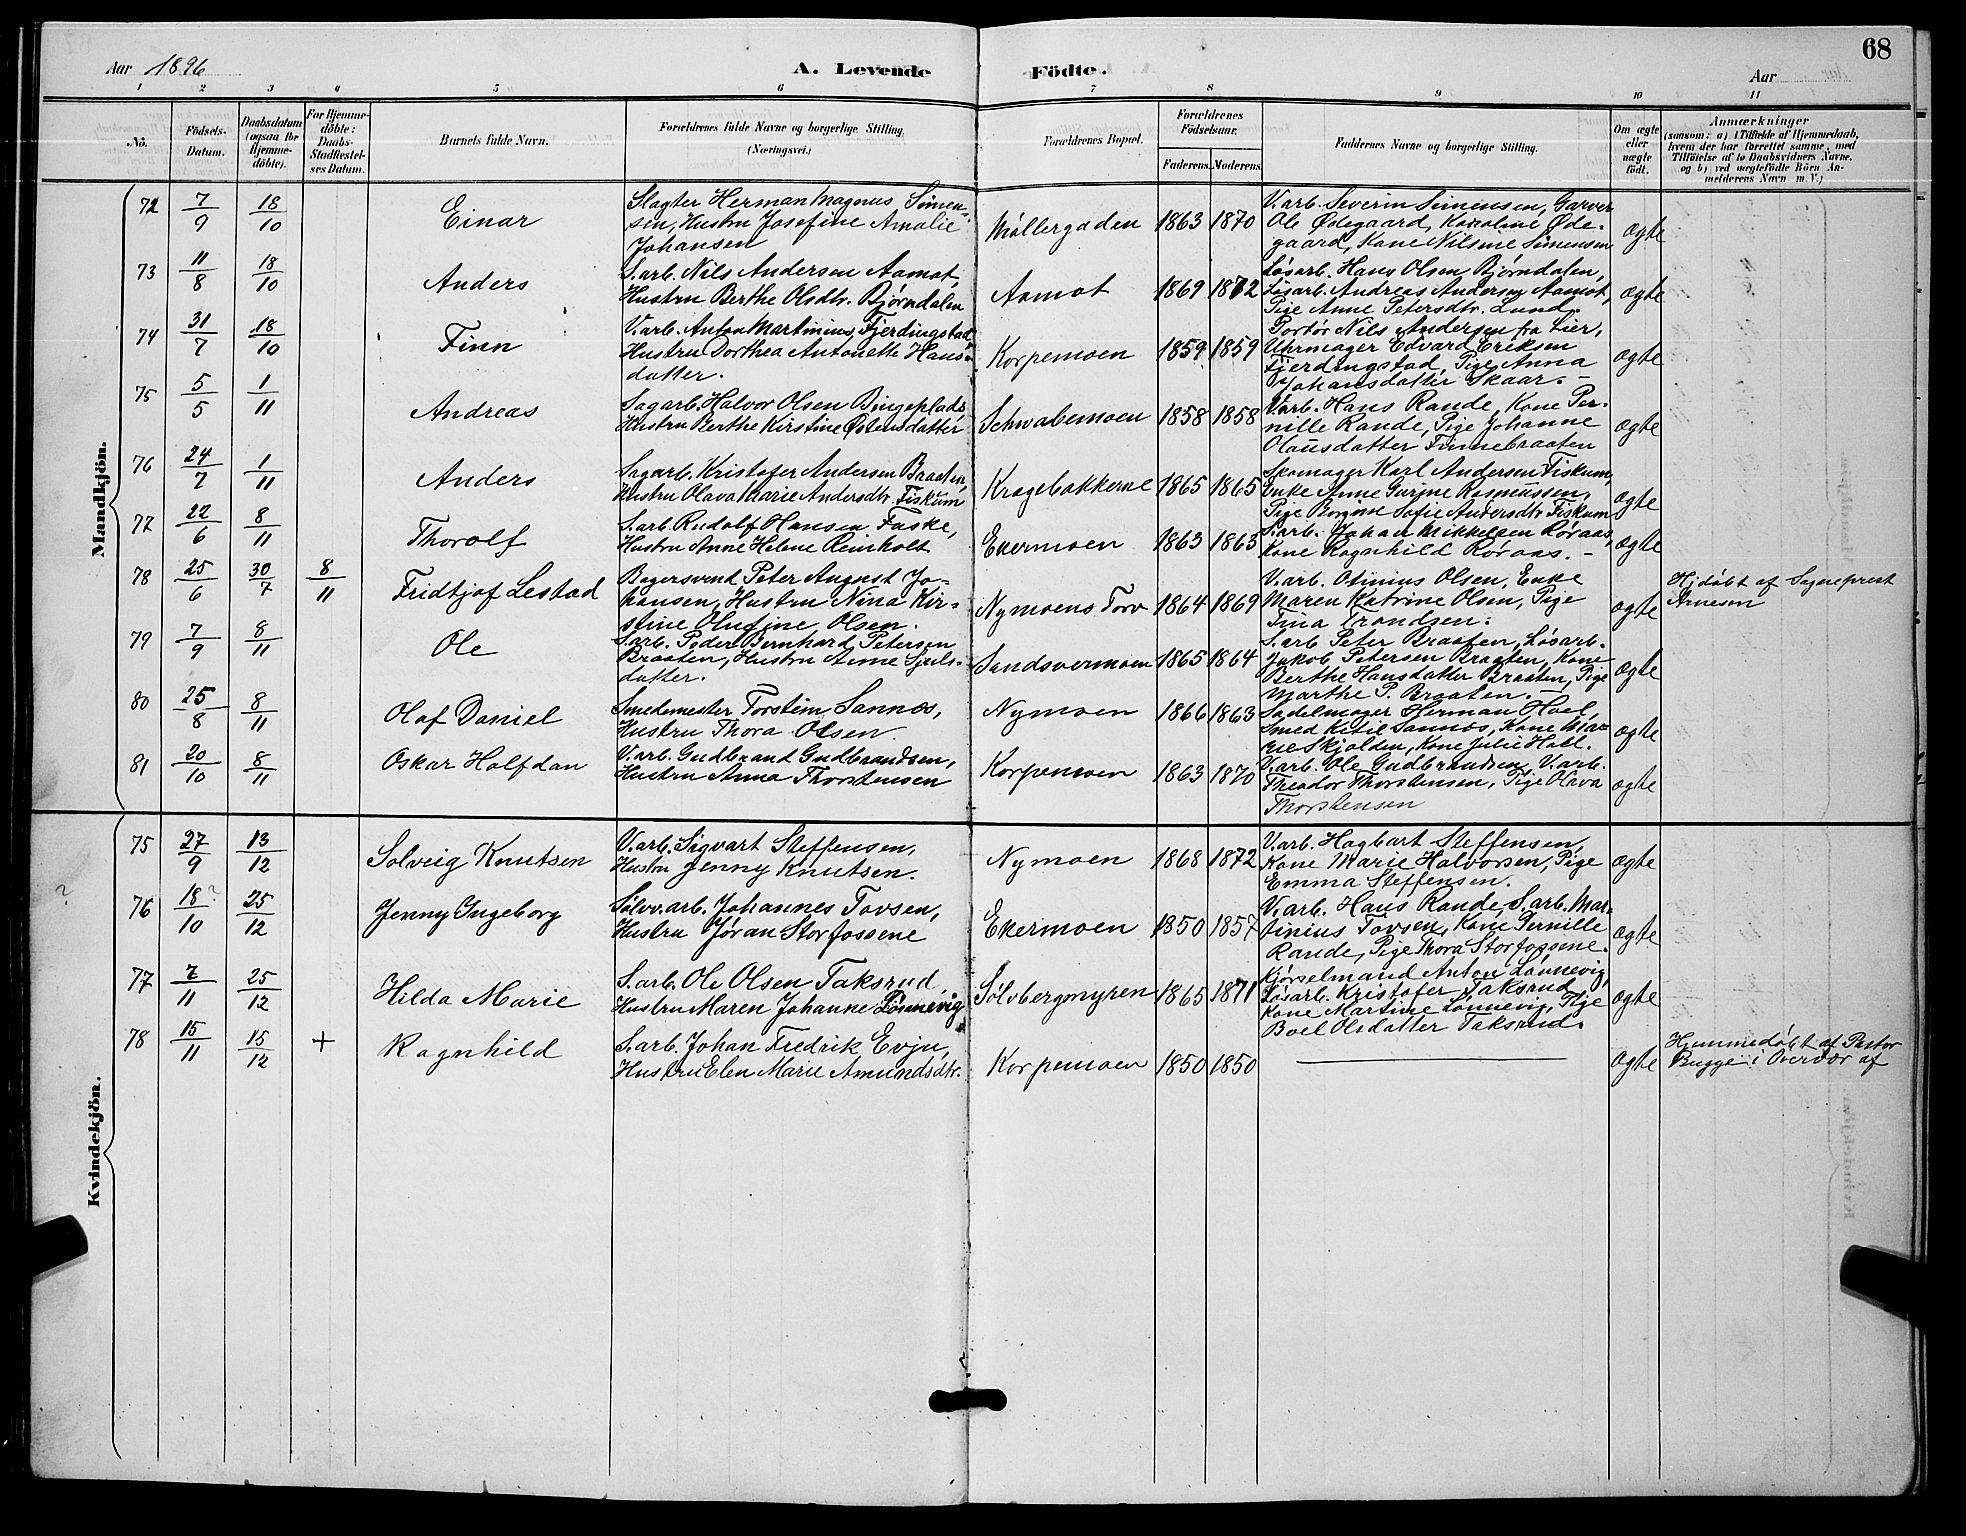 68
Aar 1896 A. Levende Födte. Aar
1 2 3 4 5 6 7 8 9 10 11
No.
Födsels-Datum.
Daabsdatum (ogsaa for Hjemme-döbte).
For Hjemme-döbte: Daabs-Stadfæstel-ses Datum.
Barnets fulde Navn.
Forældrenes fulde Navne og borgerlige Stilling. (Næringsvei.)
Forældrenes Bopæl.
Forældrenes Födselsaar.
Faderens. Moderens.
Faddernes Navne og borgerlige Stilling.
Om ægte eller uægte födt.
Anmærkninger
(saasom: a) i Tilfælde af Hjemmedaab, hvem der har forrettet samme, med Tilföielse af to Daabsvidners Navne, og b) ved uægtefödte Börn An-melderens Navn m. V.)
Mandkjön.
72 7/9 18/10 Einar
Slagter Herman Magnus Simen-
sen, Hustru Josefine Amalie
Johansen
Møllergaden 1863 1870
V.arb. Severin Simensen, Garver
Ole Ødegaard, Karoline Øde-
gaard, Kone Nilsine Simensen
ægte
73 11/8 18/10 Anders
S.arb. Nils Andersen Aamot,
Hustru Berthe Olsdtr. Bjørndalen
Aamot 1869 1872
Løsarb. Hans Olsen Bjørndalen,
Løsarb. Andreas Andersen Aamot,
Pige Anne Petersdtr. Lund
ægte
74 31/7 18/10 Finn
V.arb. Anton Martinius Fjerdingstad
Hustru Dorthea Antonette Hans-
datter.
Korpemoen 1859 1859
Portør Nils Andersen fra Lier,
Uhrmager Edvard Eriksen
Fjerdingstad, Pige Anna
Johansdatter Skaar. -
ægte
75 5/5 1/11 Andreas
Sagarb. Halvor Olsen Bingeplads,
Hustru Berthe Kirstine Østensdatter
Schwabemoen 1858 1858
V.arb. Hans Rande, Kone Per-
nille Rande, Pige Johanne
Olausdatter Finnebraaten
ægte
76 24/7 1/11 Anders
Sagarb. Kristofer Andersen Braaten,
Hustru Olava Marie Andersdtr. Fiskum
Kragebakkerne 1865 1865
Skomager Karl Andersen Fiskum,
Enke Anne Gurine Rasmussen,
Pige Borgine Sofie Andersdtr Fiskum
ægte
77 22/6 8/11 Thorolf
S.arb. Rudolf Hansen Faske,
Hustru Anne Helene Reinholt
Ekermoen 1863 1863
S.arb. Johan Mikkelsen Røraas,
Kone Ragnhild Røraas. -
ægte
78 25/6 30/7 8/11 Fridtjof Lestad
Bagersvend Peter August Jo-
hansen, Hustru Nina Kir-
stine Olufine Olsen.
Nymoens Torv 1864 1869
V.arb. Otinius Olsen, Enke
Maren Katrine Olsen, Pige
Tina Trondsen.
ægte
Hjdøbt af Sogneprest
Arnesen
79 7/9 8/11 Ole
S.arb. Peder Bernhard Petersen
Braaten, Hustru Anne Sjuls-
datter.
Sandsvermoen 1865 1864
S.arb. Peter Braaten, Løsarb.
Jakob Petersen Braaten, Kone
Berthe Hansdatter Braaten, Pige
Marthe P. Braaten. -
ægte
80 25/8 8/11 Olaf Daniel
Smedemester Torstein Sannes,
Hustru Thora Olsen
Nymoen 1866 1863
Sadelmager Herman Hoel,
Smed Ketil Sannes, Kone Ma-
rie Skjolden, Kone Julie Hoel.
ægte
81 20/10 8/11 Oskar Halfdan
V.arb. Gudbrand Gudbrandsen,
Hustru Anna Thorstensen
Korpemoen 1863 1870
V.arb. Ole Gudbrandsen, V.arb.
Theodor Thorstensen, Pige Olava
Thorstensen
ægte
Kvindekjön.
75 27/9 13/12 Solveig Knutsen
V.arb. Sigvart Steffensen,
Hustru Jenny Knutsen.
Nymoen 1868 1872
V.arb. Hagbart Steffensen,
Kone Marie Halvorsen, Pige
Emma Steffensen.
ægte
? 76 18?/10 25/12 Jenny Ingeborg
Sølvv.arb. Johannes Tovsen,
Hustru Jøran Storfossene
Ekermoen 1850 1857
V.arb. Hans Rande, S.arb. Mar-
tinius Tovsen, Kone Pernille
Rande, Pige Thora Storfossene.
ægte
77 7/11 25/12 Hilda Marie
S.arb. Ole Olsen Taksrud,
Hustru Maren Johanne Lønnevig
Sølvbergmyren 1865 1871
Kjørselmand Anton Lønnevig,
Løsarb. Kristofer Taksrud,
Kone Martine Lønnevig, Pige
Boel Olsdatter Taksrud.
ægte
78 15/11 15/12 + Ragnhild
S.arb. Johan Fredrik Evju,
Hustru Elen Marie Amundsdtr.
Korpemoen 1850 1850
ægte
Hjemmedøbt af Pastor
Bugge i Overvær af